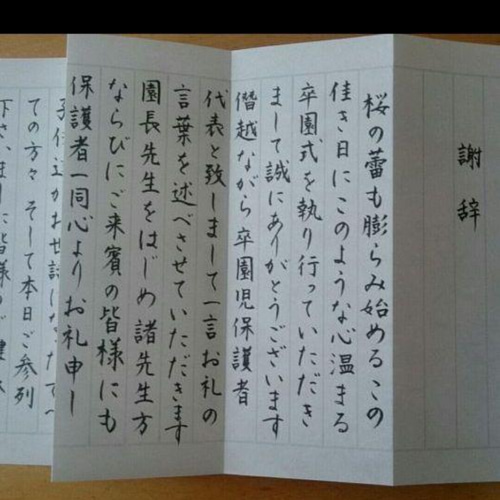 謝辞
桜の蕾も膨らみ始めるこの
佳き日にこのような心温まる
卒園式を執り行っていただき
まして誠にありがとうございます
僭越ながら卒園児保護者
代表と致しまして一言お礼の
言葉を述べさせていただきます
園長先生をはじめ諸先生方
ならびにご来賓の皆様にも
保護者一同心よりお礼申し
ての方々そして本日ご参列
下さいました皆様のご健